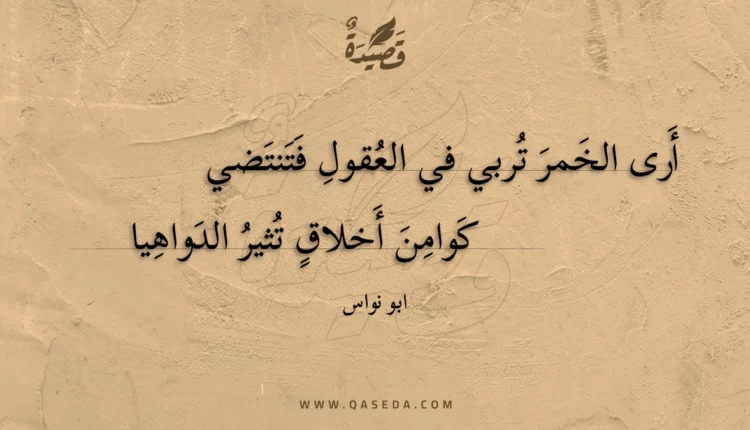 قَصِيدَةٌ
أَرى الخَمرَ تُربي في العُقولِ فَتَنتَضي
كَوامِنَ أَخلاقٍ تُثيرُ الدَواهِيا
ابو نواس
WWW.QASEDA.COM